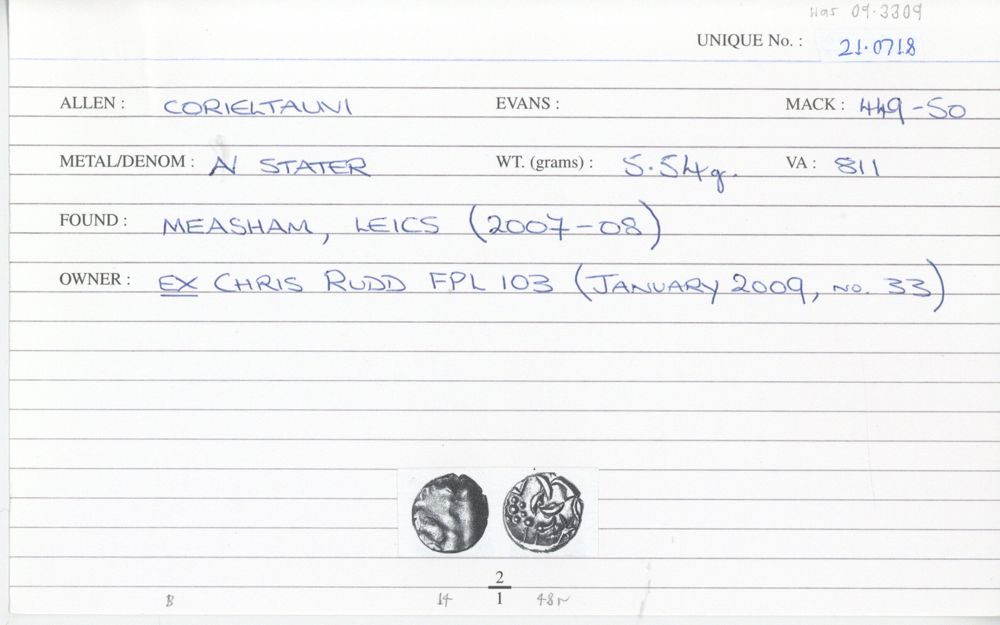 was 09.3309
UNIQUE No. : 21.0718
ALLEN : CORIELTAUVI EVANS : MACK : 449-50
METAL/DENOM : AV STATER WT. (grams) : 5.54g. VA : 811
FOUND : MEASHAM, LEICS (2007-08)
OWNER : EX CHRIS RUDD FPL 103 (JANUARY 2009, no. 33)
2
B 14 1 48r